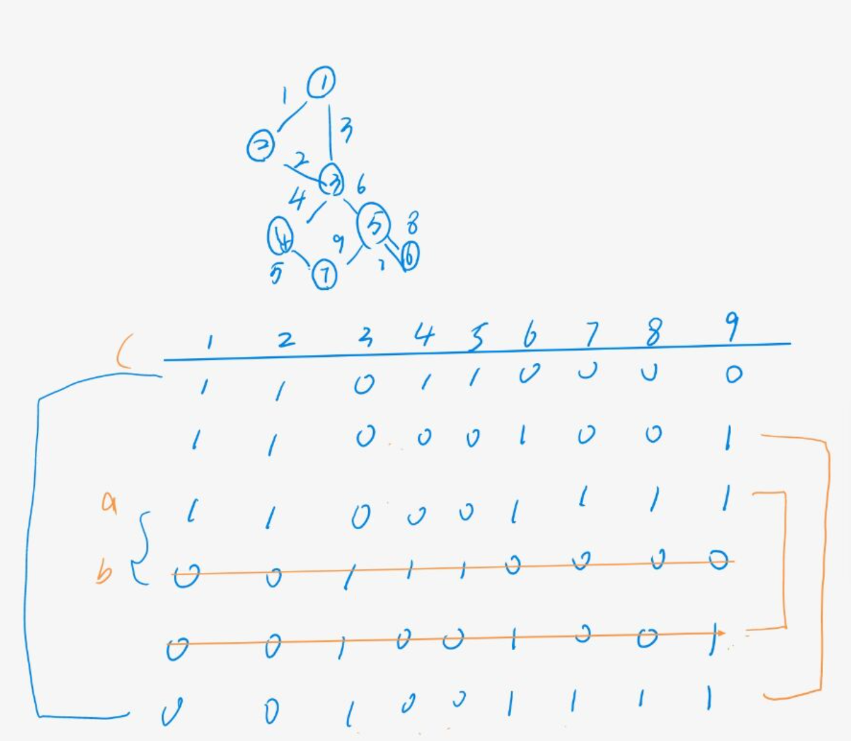 1
1
3
2
2
3
6
4
5
8
4
9
7
6
5
7
C 1 2 3 4 5 6 7 8 9
1 1 0 1 1 0 0 0 0
1 1 0 0 0 1 0 0 1
a 1 1 0 0 0 1 1 1 1
b 0 0 1 1 1 0 0 0 0
0 0 1 0 0 1 0 0 1
0 0 1 0 0 1 1 1 1